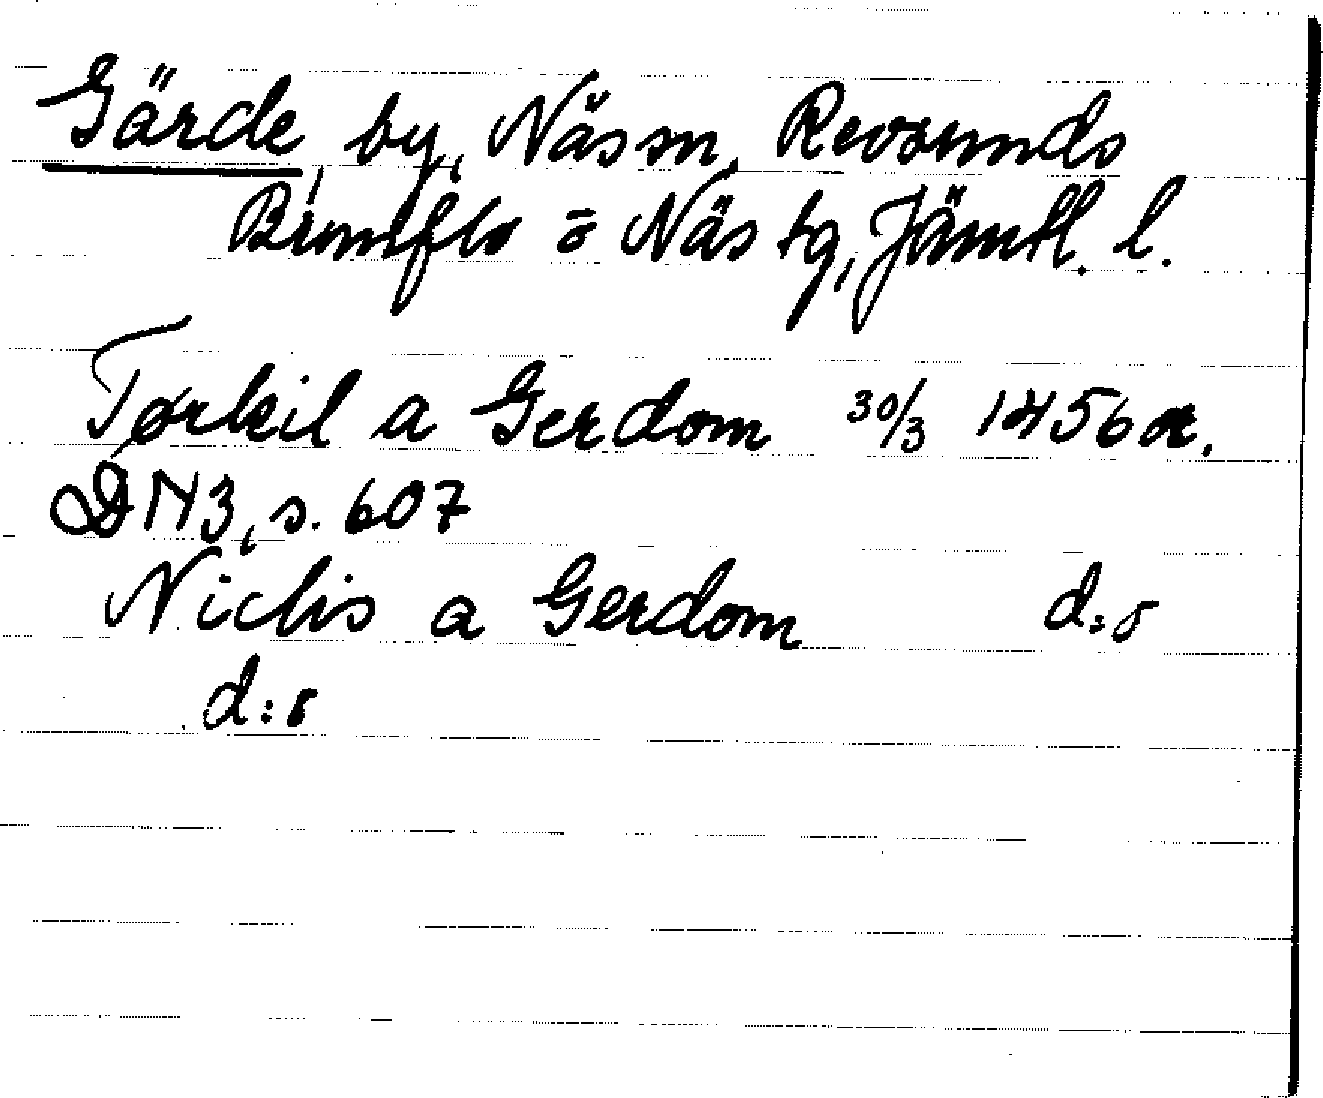 Gärde, by, Näs sn, Revsunds
Brunflo o Näs tg, Jämtl. l.
Tørkil a Gerdom 30/3 1456 or.
DN 3, s. 607
Niclis a Gerdom d:o
d:o